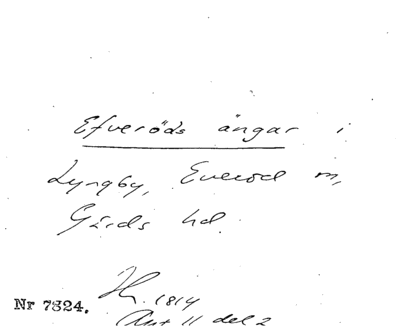 Efveröds ängar i
Lyngby, Everöd m,
Gärds hd.
1814
Nr 7324.
11 del 2